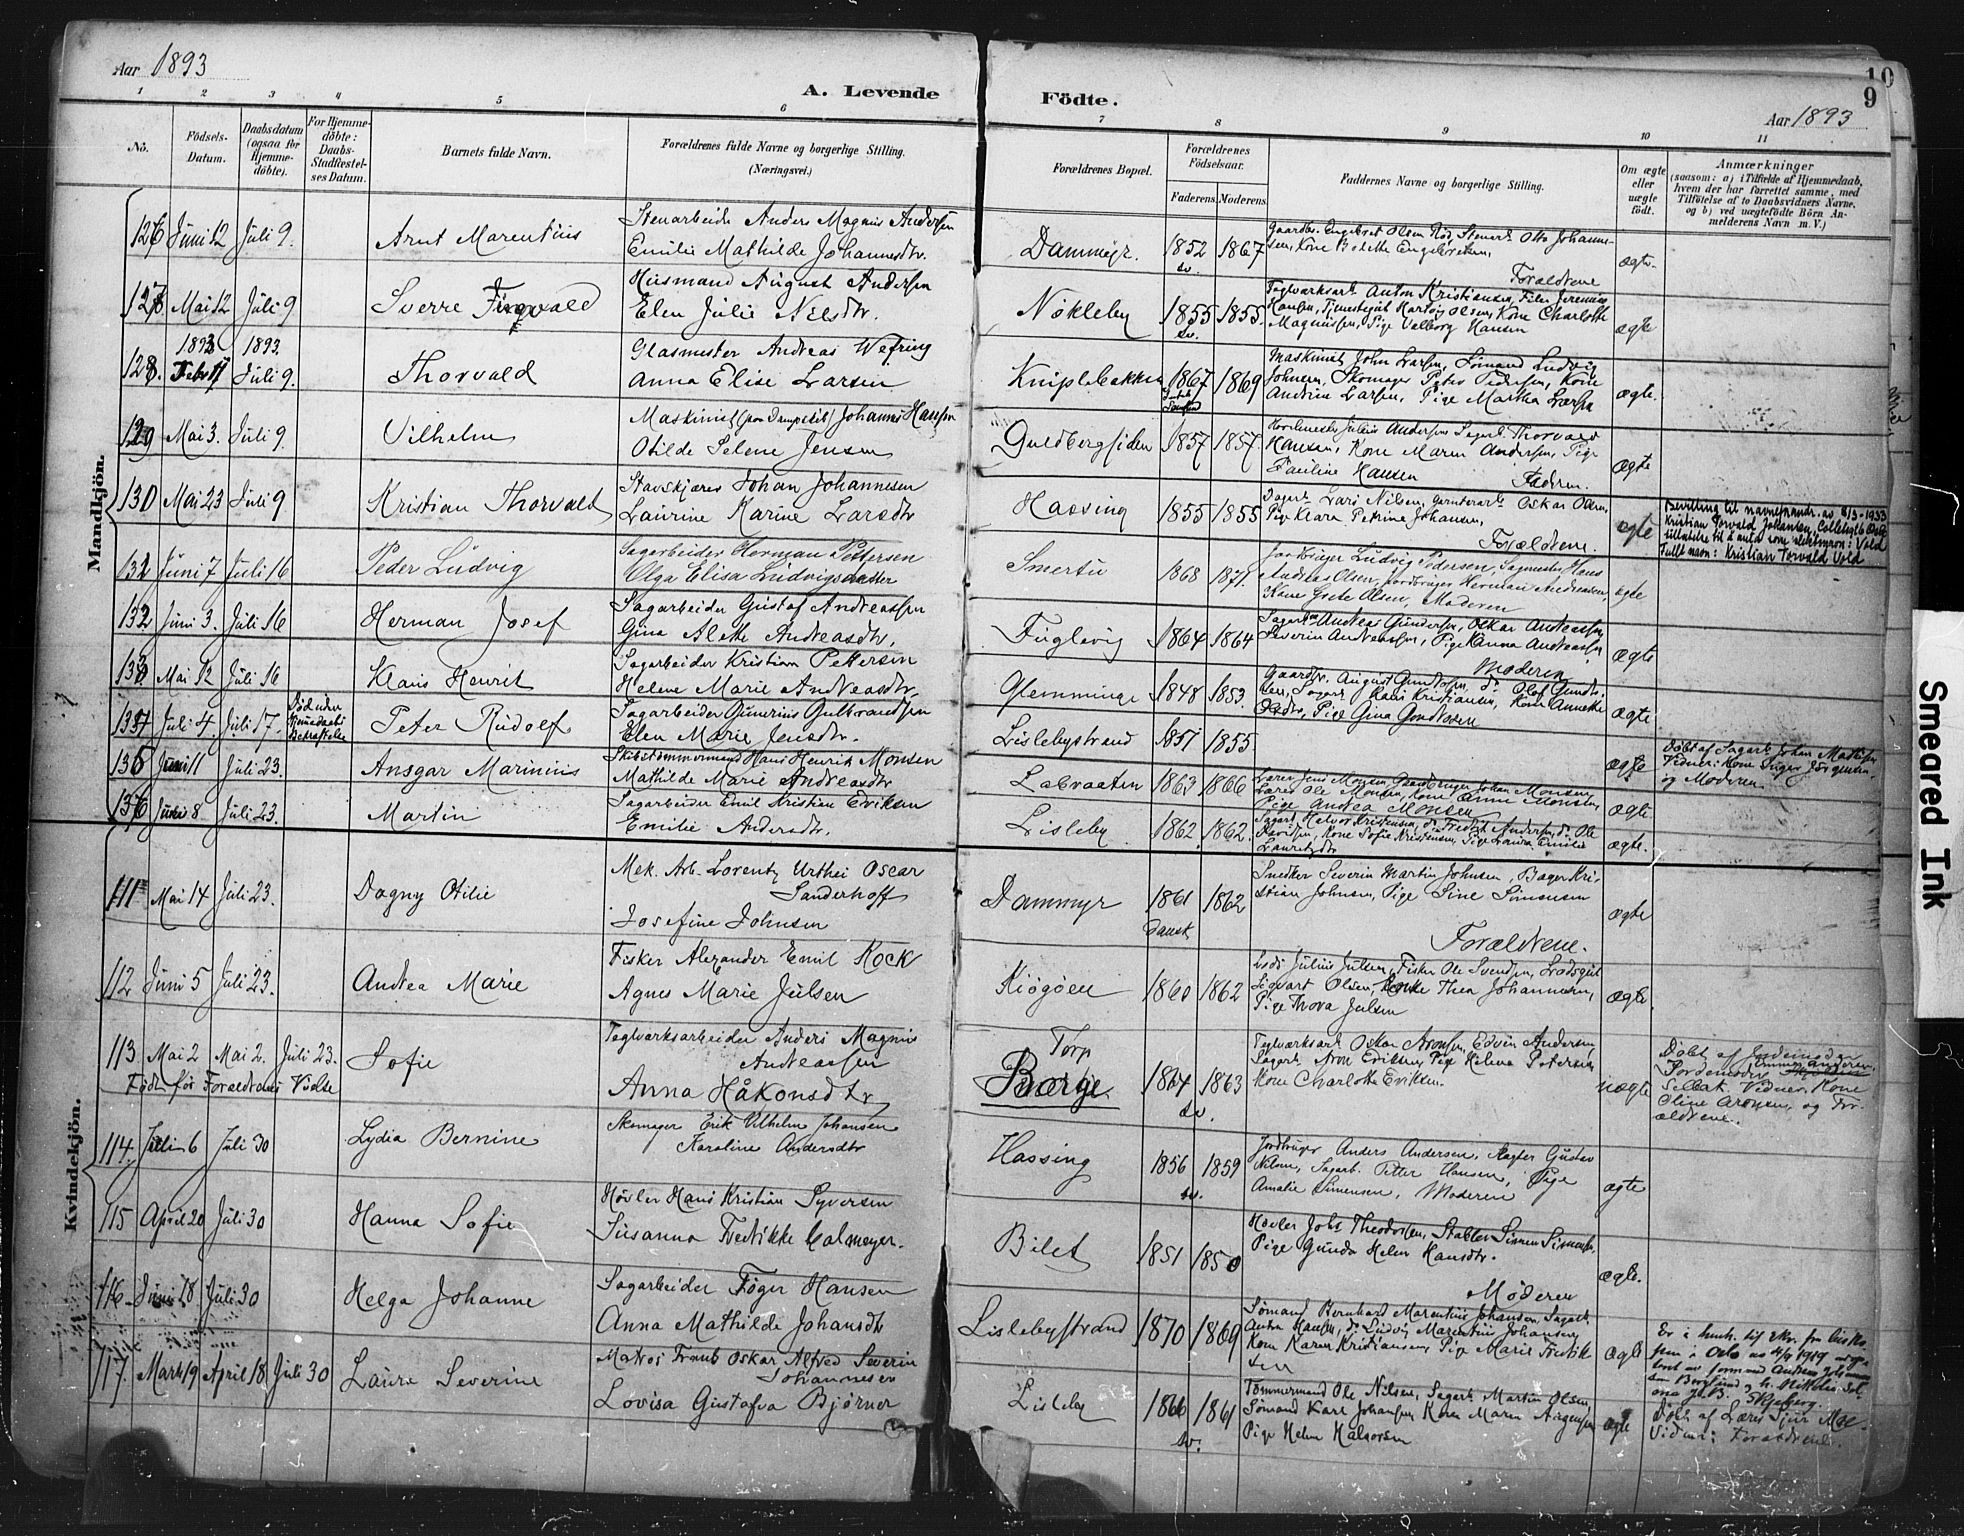 Aar 1893
A. Levende
Födte.
10
9
Aar 1893
1 2 3 4 5 6 7 8 9 10 11
No.
Födsels-Datum.
Daabsdatum (ogsaa for Hjemme-döbte).
For Hjemme-döbte: Daabs-Stadfæstel-ses Datum.
Barnets fulde Navn.
Forældrenes fulde Navne og borgerlige Stilling.
(Næringsvei.)
Forældrenes Bopæl.
Forældrenes Födselsaar.
Faderens. Moderens.
Faddernes Navne og borgerlige Stilling.
Om ægte eller uægte födt.
Anmærkninger
(saasom: a) i Tilfælde af Hjemmedaab, hvem der har forrettet samme, med Tilföielse af to Daabsvidners Navne, og b) ved uægtefödte Börn An-melderens Navn m. V.)
Mandkjön.
126 Juni 12 Juli 9. Arnt Marentius
Stenarbeider Anders Magnus Andersen
Emilie Mathilde Johannesdtr.
Dammyr. 1852 sv. 1867
Gaardbr. Engebret Olsen Rød, Stenarb. Otto Johanne-
sen, Kone Bodette Engebretsen,
Forældrene
ægte.
127 Mai 12 Juli 9 Sverre
Husmand August Andersen
Elen Julie Nilsdtr.
Nøkleby 1855 sv. 1855
Teglværksarb. Anton Kristiansen,
Hansen, Olsen, Kone Charlotte
Magnussen, Pige Valborg Hansen
ægte
128. 1893 Febr 17 1893. Juli 9. Thorvald
Glasmester Andreas Wefring
Anna Elise Larsen
Kniplebakken 1867 1869
Maskinist John Larsen, Sømand Ludvig
Johnsen, Skomager Peter Pedersen, Kone
Andrine Larsen, Pige Martha Larsen
ægte.
129 Mai 3. Juli 9. Vilhelm
Maskinist (paa Dampskib) Johannes Hansen
Otilde Selene Jensen
Guldbergsiden 1857 1857
Julius Andersen Sagarb. Thorvald
Hansen, Kone Maren Andersen, Pige
Pauline Hansen
Faderen.
ægte
130 Mai 23 Juli 9 Kristian Thorvald
Stavskjærer Johan Johannesen
Laurine Karine Larsdtr
Hassing 1855 1855
Lars Nilsen, Oskar Olsen,
Pige Klara Petrine Johansen,
Forældrene.
ægte
Bevilling til navneforandr. av 8/3-1933
Kristian Torvald Johansen,
tillatelse til å anta som slektsnavn: Vold
Fullt navn: Kristian Torvald Vold
131 Juni 7 Juli 16 Peder Ludvig
Sagarbeider Herman Pettersen
Olga Elisa Ludvigsdatter
Smertu 1868 1871.
Jordbruger Ludvig Pedersen, Sagmester Hans
Andreas Olsen, Jordbruger Herman Andreasen,
Kone Grete Olsen, Moderen
ægte
132 Juni 3. Juli 16 Herman Josef
Sagarbeider Gustaf Andreassen
Gina Alette Andreasdtr.
Fuglevig 1864 1864
Sagarb. Andreas Gundersen, Oskar Andreassen
Severin Andreassen, Pige Kanna Andreassen
Moderen
ægte
133. Mai 12 Juli 16 Klaus Henrik
Sagarbeider Kristian Pettersen
Helene Marie Andreasdtr.
Glemminge 1848 1853.
Gaardbr. August Gundersen, do Olof
Sagarb. Hans Kristiansen, Kone Annette
Pige Gina Gundersen
ægte
134 Juli 4. Juli 17. Død uden Hjemmedaabs Bekræftelse
Peter Rudolf
Sagarbeider Gunerius Gulbrandsen
Elen Marie Jensdtr.
Lislebystrand 1851 1855
ægte
Døbt af Sagarb. Johan Mathisen
Vidner: Kone Inger Jørgensen
og Moderen.
135 Juni 11 Juli 23. Ansgar Marinius
Skibstømmermand Hans Henrik Monsen
Mathilde Marie Andreasdtr
Labraaten 1863 1866
Lærer Jens Monsen, Gaardbruger Johan Monsen,
Lærer Ole Monsen, Kone Anne Monsen,
Pige Andrea Monsen
ægte
136 Juni 8 Juli 23. Martin
Sagarbeider Emil Kristian Eriksen
Emilie Andersdtr.
Lisleby 1862 1862.
Sagarb. Halvor Kristensen, do Fredrik Andersen, do Ole
Davidsen, Kone Sofie Kristensen, Pige Laura Emilie
Lauritzdtr
ægte.
Kvindekjön.
111 Mai 14 Juli 23. Dagny Otilie
Mek. Arb. Lorentz Urthei Oscar
Sanderhoff
Josefine Johnsen
Dammyr 1861 Dansk 1862
Snedker Severin Martin Johnsen, Bager Kri-
stian Johnsen, Pige Sine Simensen
Forældrene.
ægte
112 Juni 5 Juli 23. Andrea Marie
Fisker Alexander Emil Kock
Agnes Marie Julsen
Kiøgøen 1860 1862
Lods Julius Julsen, Fisker Ole Svendsen, Lodsgut
Sigvart Olsen, Kone Thea Johannesen,
Pige Thora Julsen
ægte
113 Mai 2 Mai 2. Juli 23. Sofie
Født før Forældrenes Vielse
Teglværksarbeider Anders Magnus
Andreassen
Anna Håkonsdtr
Torp
Borge 1864 sv. 1863
Teglværksarb. Oskar Aronsen, Edvin Andersen,
Sagarb. Aron Eriksen, Pige Helene Petersen
Kone Charlotte Eriksen.
uægte
Døbt af Jordemoder
Selbak. Vidner, Kone
Oline Aronsen, og For-
ældrene.
114. Juli 6 Juli 30 Lydia Bernine
Skomager Erik Vilhelm Johansen
Karoline Andersdtr
Hassing 1856 sv. 1859
Jordbruger Anders Andersen, Gustav
Nilsen, Sagarb. Petter Hansen, Pige
Amalie Simensen, Moderen
ægte
115 April 20 Juli 30 Hanna Sofie
Høvler Hans Kristian Syversen
Susanna Fredrikke Calmeyer.
Bilet 1851 1850
Høvler Johs Theodorsen, Stabler Simen Simensen,
Pige Gunda Helen Hansdtr.
Moderen
ægte.
116. Juni 18 Juli 30 Helga Johanne
Sagarbeider Føger Hansen
Anna Mathilde Johansdtr
Lislebystrand 1870 1869
Sømand Bernhard Marentius Johansen, Sagarb.
Anton Hansen, do Ludvig Marentius Johansen,
Kone Karen Kristiansen, Pige Marie Fredrik
sen
ægte
Er i henh. til skr. fra
i Oslo av 4/9 1919
Skjeberg.
117. Marts 19 April 18 Juli 30 Laura Severine
Matros Oskar Alfred Severin
Johannesen
Lovisa Gustafva Bjørner
Lisleby 1866 sv. 1861
Tømmermand Ole Nilsen, Sagarb. Martin Olsen,
Sømand Karl Johansen, Kone Maren Jørgensen
Pige Helen Halvorsen
ægte
Døbt af Lærer Sjur Moe.
Vidner: Forældrene.
Smeared Ink